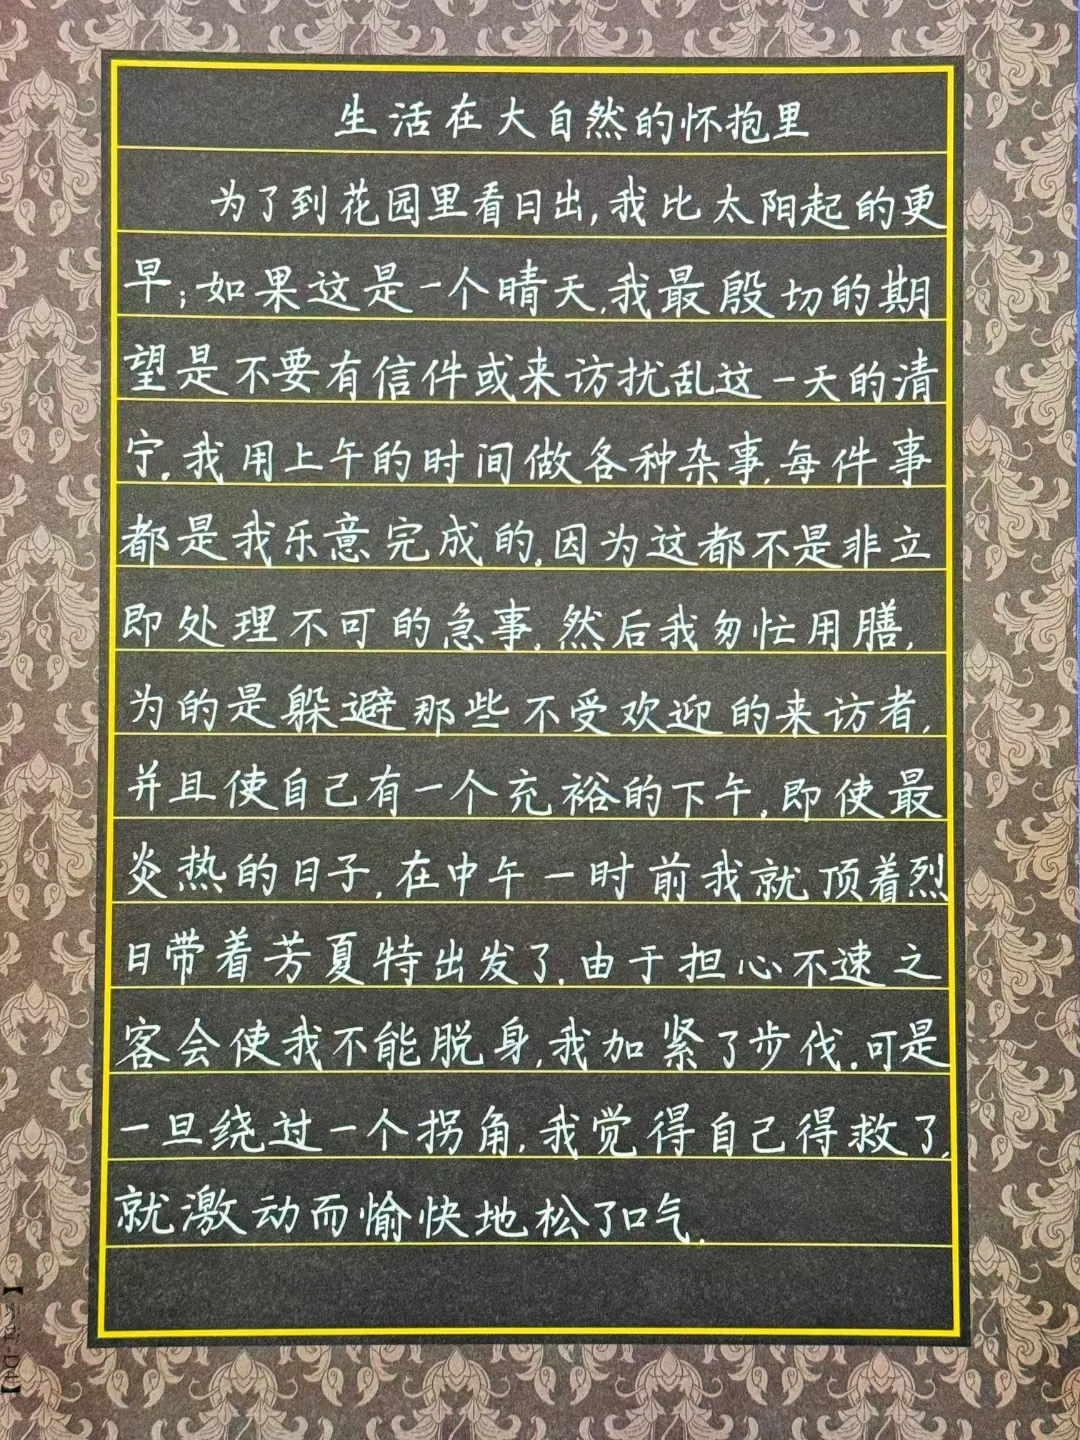 生活在大自然的怀抱里
为了到花园里看日出,我比太阳起的更
早;如果这是一个晴天,我最殷切的期
望是不要有信件或来访扰乱这一天的清
宁.我用上午的时间做各种杂事.每件事
都是我乐意完成的.因为这都不是非立
即处理不可的急事.然后我匆忙用膳,
为的是躲避那些不受欢迎的来访者,
并且使自己有一个充裕的下午.即使最
炎热的日子,在中午一时前我就顶着烈
日带着芳夏特出发了.由于担心不速之
客会使我不能脱身,我加紧了步伐.可是
一旦绕过一个拐角,我觉得自己得救了,
就激动而愉快地松了口气.